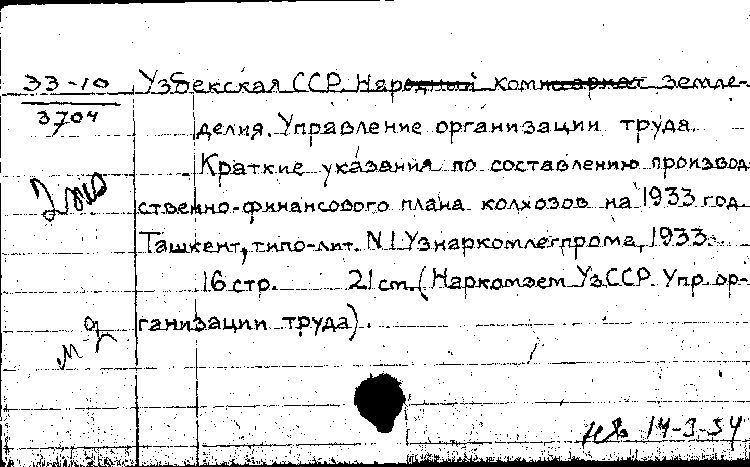 33-10
3704
2 экз
м-д
Узбекская ССР. Народный комиссариат земле-
делия. Управление организации труда.
Краткие указания по составлению производ-
ственно-финансового плана колхозов на 1933 год.
Ташкент, типо-лит. N1 Узнаркомлегпрома, 1933.
16 стр. 21 см. (Наркомзем УзССР. Упр. ор-
ганизации труда).
14-3-34